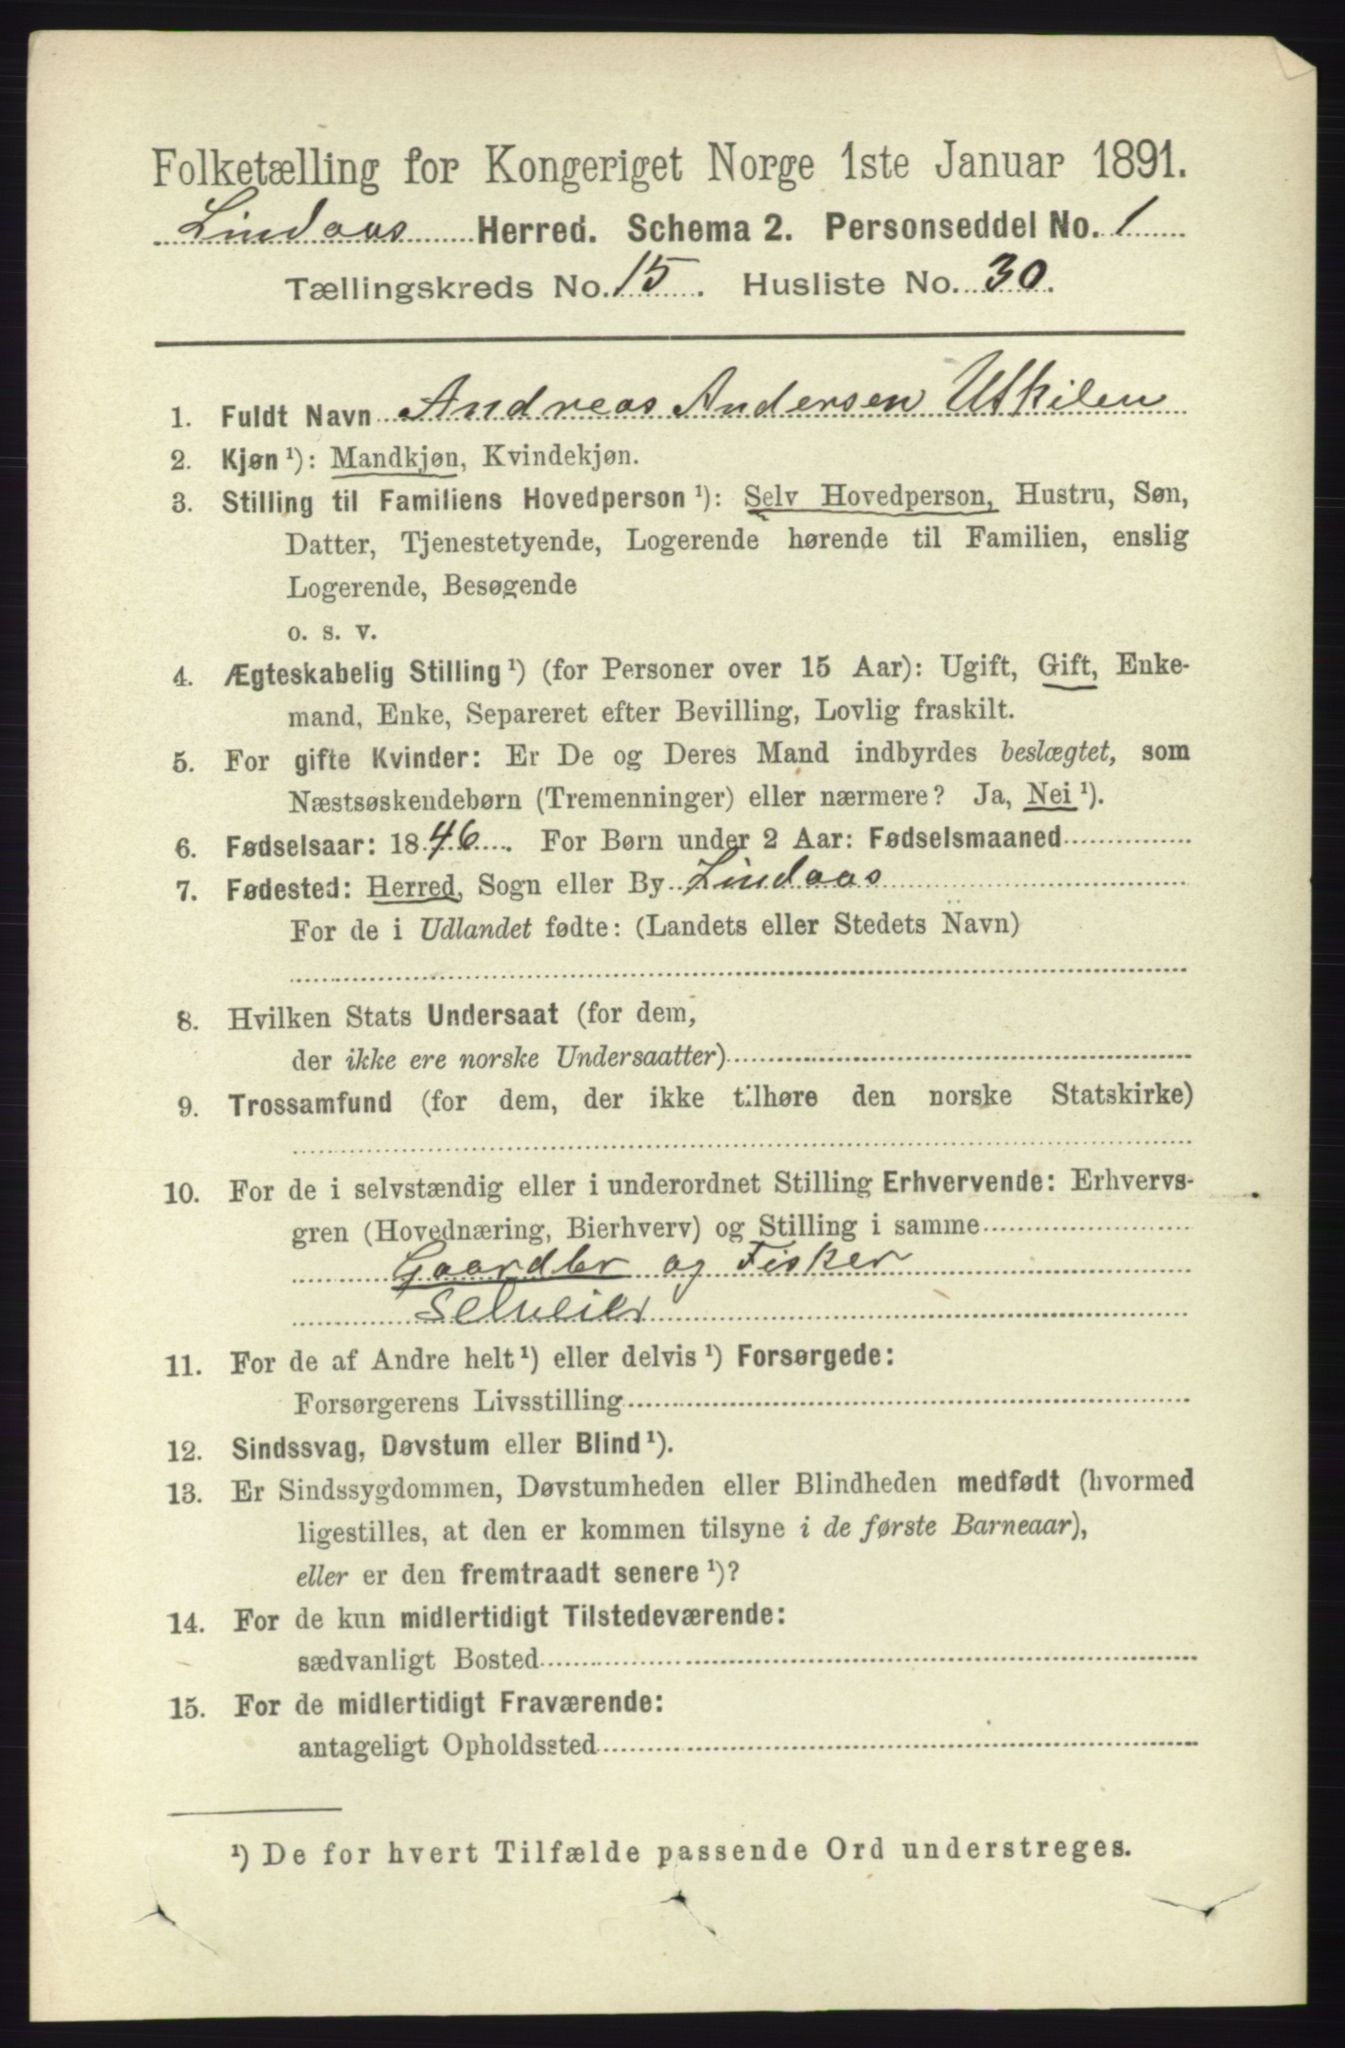 Folketælling for Kongeriget Norge 1ste Januar 1891.
Lindaas Herred. Schema 2. Personseddel No. 1
Tællingskreds No. 15. Husliste No. 30.
1. Fuldt Navn Andreas Andersen Utkilen
2. Kjøn ¹): Mandkjøn, Kvindekjøn.
3. Stilling til Familiens Hovedperson ¹): Selv Hovedperson, Hustru, Søn,
Datter, Tjenestetyende, Logerende hørende til Familien, enslig
Logerende, Besøgende
o. s. v.
4. Ægteskabelig Stilling ¹) (for Personer over 15 Aar): Ugift, Gift, Enke-
mand, Enke, Separeret efter Bevilling, Lovlig fraskilt.
5. For gifte Kvinder: Er De og Deres Mand indbyrdes beslægtet, som
Næstsøskendebørn (Tremenninger) eller nærmere? Ja, Nei ¹).
6. Fødselsaar: 1846. For Børn under 2 Aar: Fødselsmaaned
7. Fødested: Herred, Sogn eller By Lindaas
For de i Udlandet fødte: (Landets eller Stedets Navn)
8. Hvilken Stats Undersaat (for dem,
der ikke ere norske Undersaatter)
9. Trossamfund (for dem, der ikke tilhøre den norske Statskirke)
10. For de i selvstændig eller i underordnet Stilling Erhvervende: Erhvervs-
gren (Hovednæring, Bierhverv) og Stilling i samme
Gaardbr og Fisker
Selveier
11. For de af Andre helt ¹) eller delvis ¹) Forsørgede:
Forsørgerens Livsstilling
12. Sindssvag, Døvstum eller Blind ¹).
13. Er Sindssygdommen, Døvstumheden eller Blindheden medfødt (hvormed
ligestilles, at den er kommen tilsyne i de første Barneaar),
eller er den fremtraadt senere ¹)?
14. For de kun midlertidigt Tilstedeværende:
sædvanligt Bosted
15. For de midlertidigt Fraværende:
antageligt Opholdssted
¹) De for hvert Tilfælde passende Ord understreges.